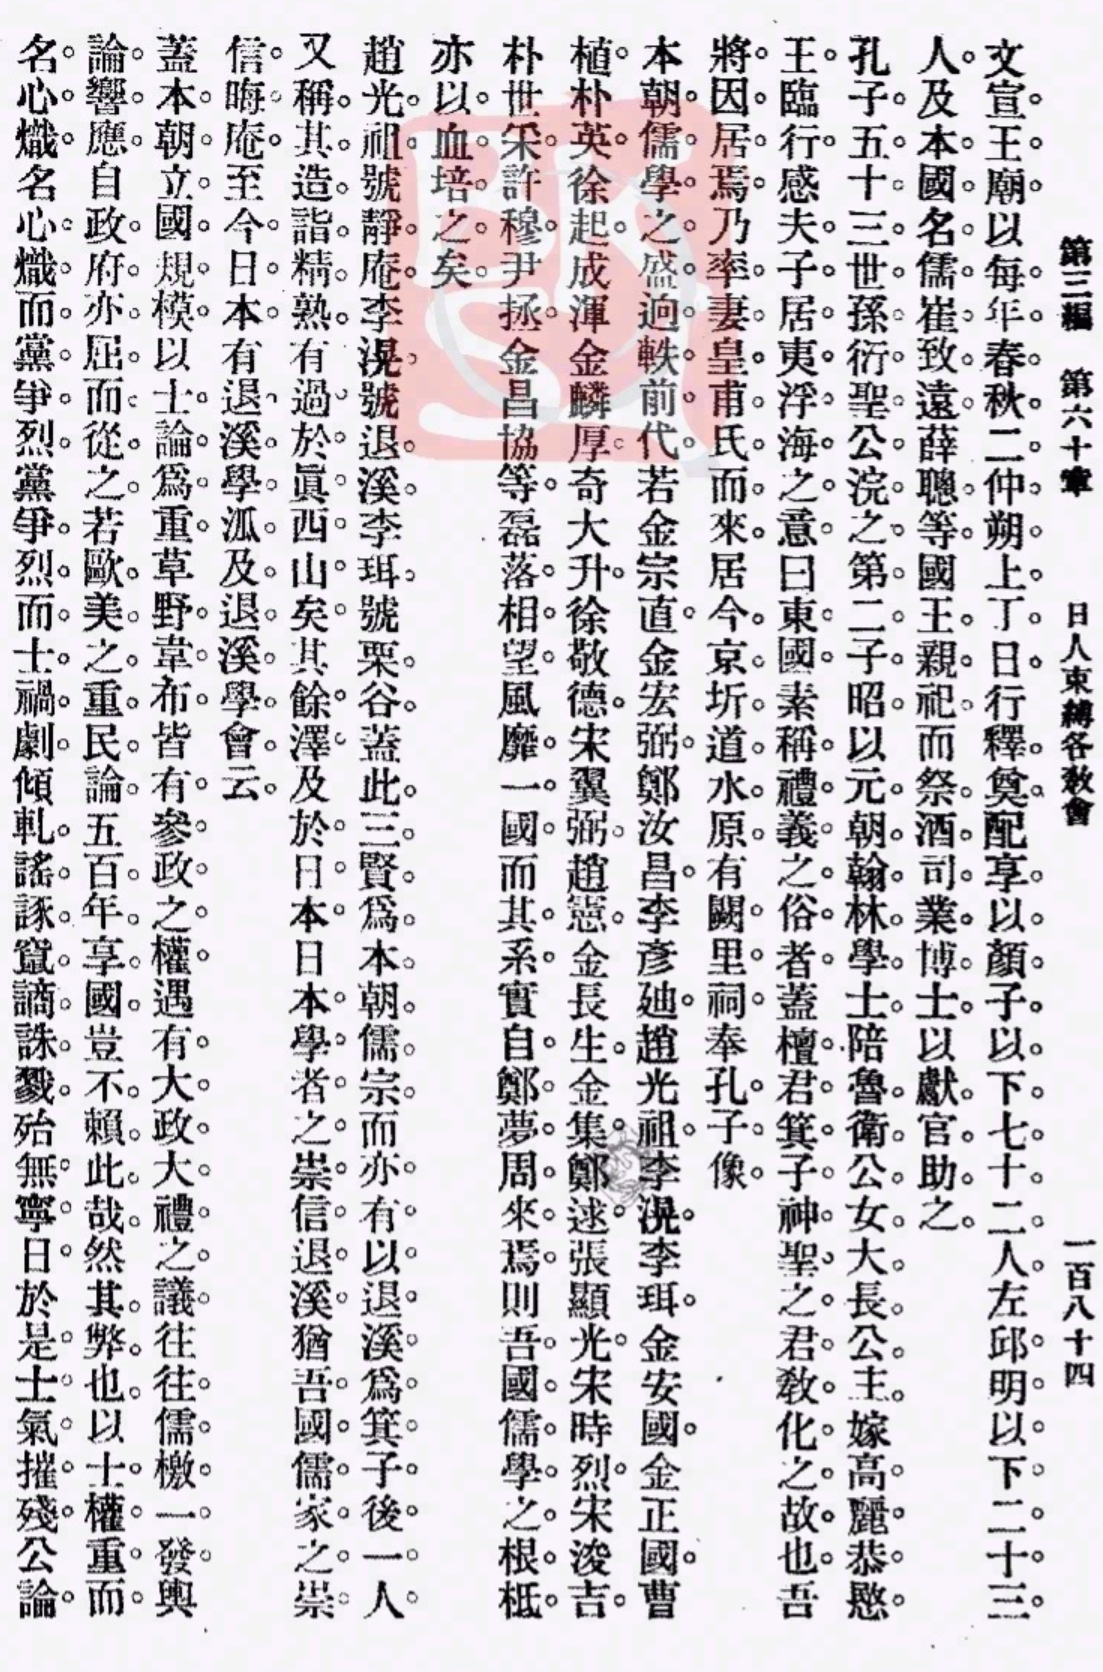 第三編　第六十章　日人束縛各敎會　一百八十四
文宣王廟以每年春秋二仲朔上丁日行釋奠配享以顏子以下七十二人左邱明以下二十三
人及本國名儒崔致遠薛聰等國王親祀而祭酒司業博士以獻官助之
孔子五十三世孫衍聖公浣之第二子昭以元朝翰林學士陪魯衛公女大長公主嫁高麗恭愍
王臨行感夫子居夷浮海之意曰東國素稱禮義之俗者蓋檀君箕子神聖之君敎化之故也吾
將因居焉乃率妻皇甫氏而來居今京圻道水原有闕里祠奉孔子像
本朝儒學之盛逈軼前代若金宗直金宏弼鄭汝昌李彥迪趙光祖李滉李珥金安國金正國曹
植朴英徐起成渾金麟厚奇大升徐敬德宋翼弼趙憲金長生金集鄭逑張顯光宋時烈宋浚吉
朴世采許穆尹拯金昌協等磊落相望風靡一國而其系實自鄭夢周來焉則吾國儒學之根柢
亦以血培之矣
趙光祖號靜庵李滉號退溪李珥號栗谷蓋此三賢爲本朝儒宗而亦有以退溪爲箕子後一人
又稱其造詣精熟有過於眞西山矣其餘澤及於日本日本學者之崇信退溪猶吾國儒家之崇
信晦庵至今日本有退溪學派及退溪學會云
蓋本朝立國規模以士論爲重草野韋布皆有參政之權遇有大政大禮之議往往儒檄一發輿
論響應自政府亦屈而從之若歐美之重民論五百年享國豈不賴此哉然其弊也以士權重而
名心熾名心熾而黨爭烈黨爭烈而士禍劇傾軋謠諑竄謫誅戮殆無寧日於是士氣摧殘公論